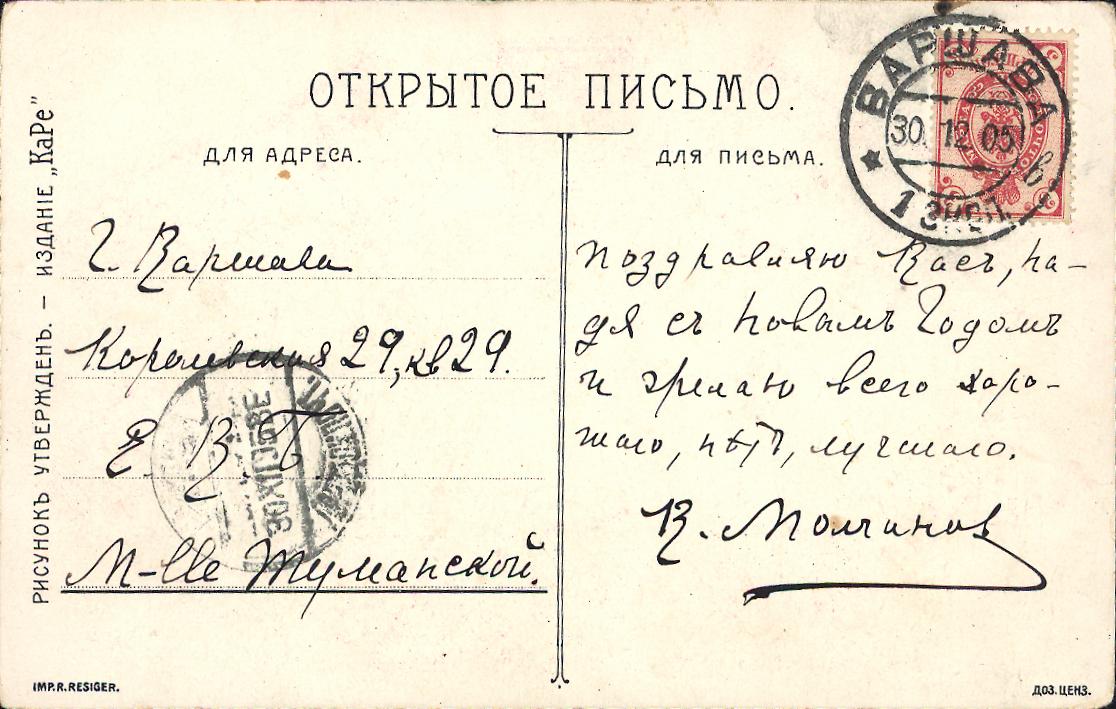 ОТКРЫТОЕ ПИСЬМО.
ДЛЯ АДРЕСА.
ДЛЯ ПИСЬМА.
РИСУНОКЪ УТВЕРЖДЕНЪ. – ИЗДАНІЕ „КаРе"
ВАРШАВА
30.12 05
1 ЭКСП.
Г. Варшава
Королевская 29, кв 29.
Е. В. П.
M-lle Туманской.
Поздравляю Васъ, На-
дя съ Новымъ Годомъ
и желаю всего харо-
шаго, нѣтъ, лучшаго.
В. Молчановъ
IMP.R.RESIGER.
ДОЗ.ЦЕНЗ.